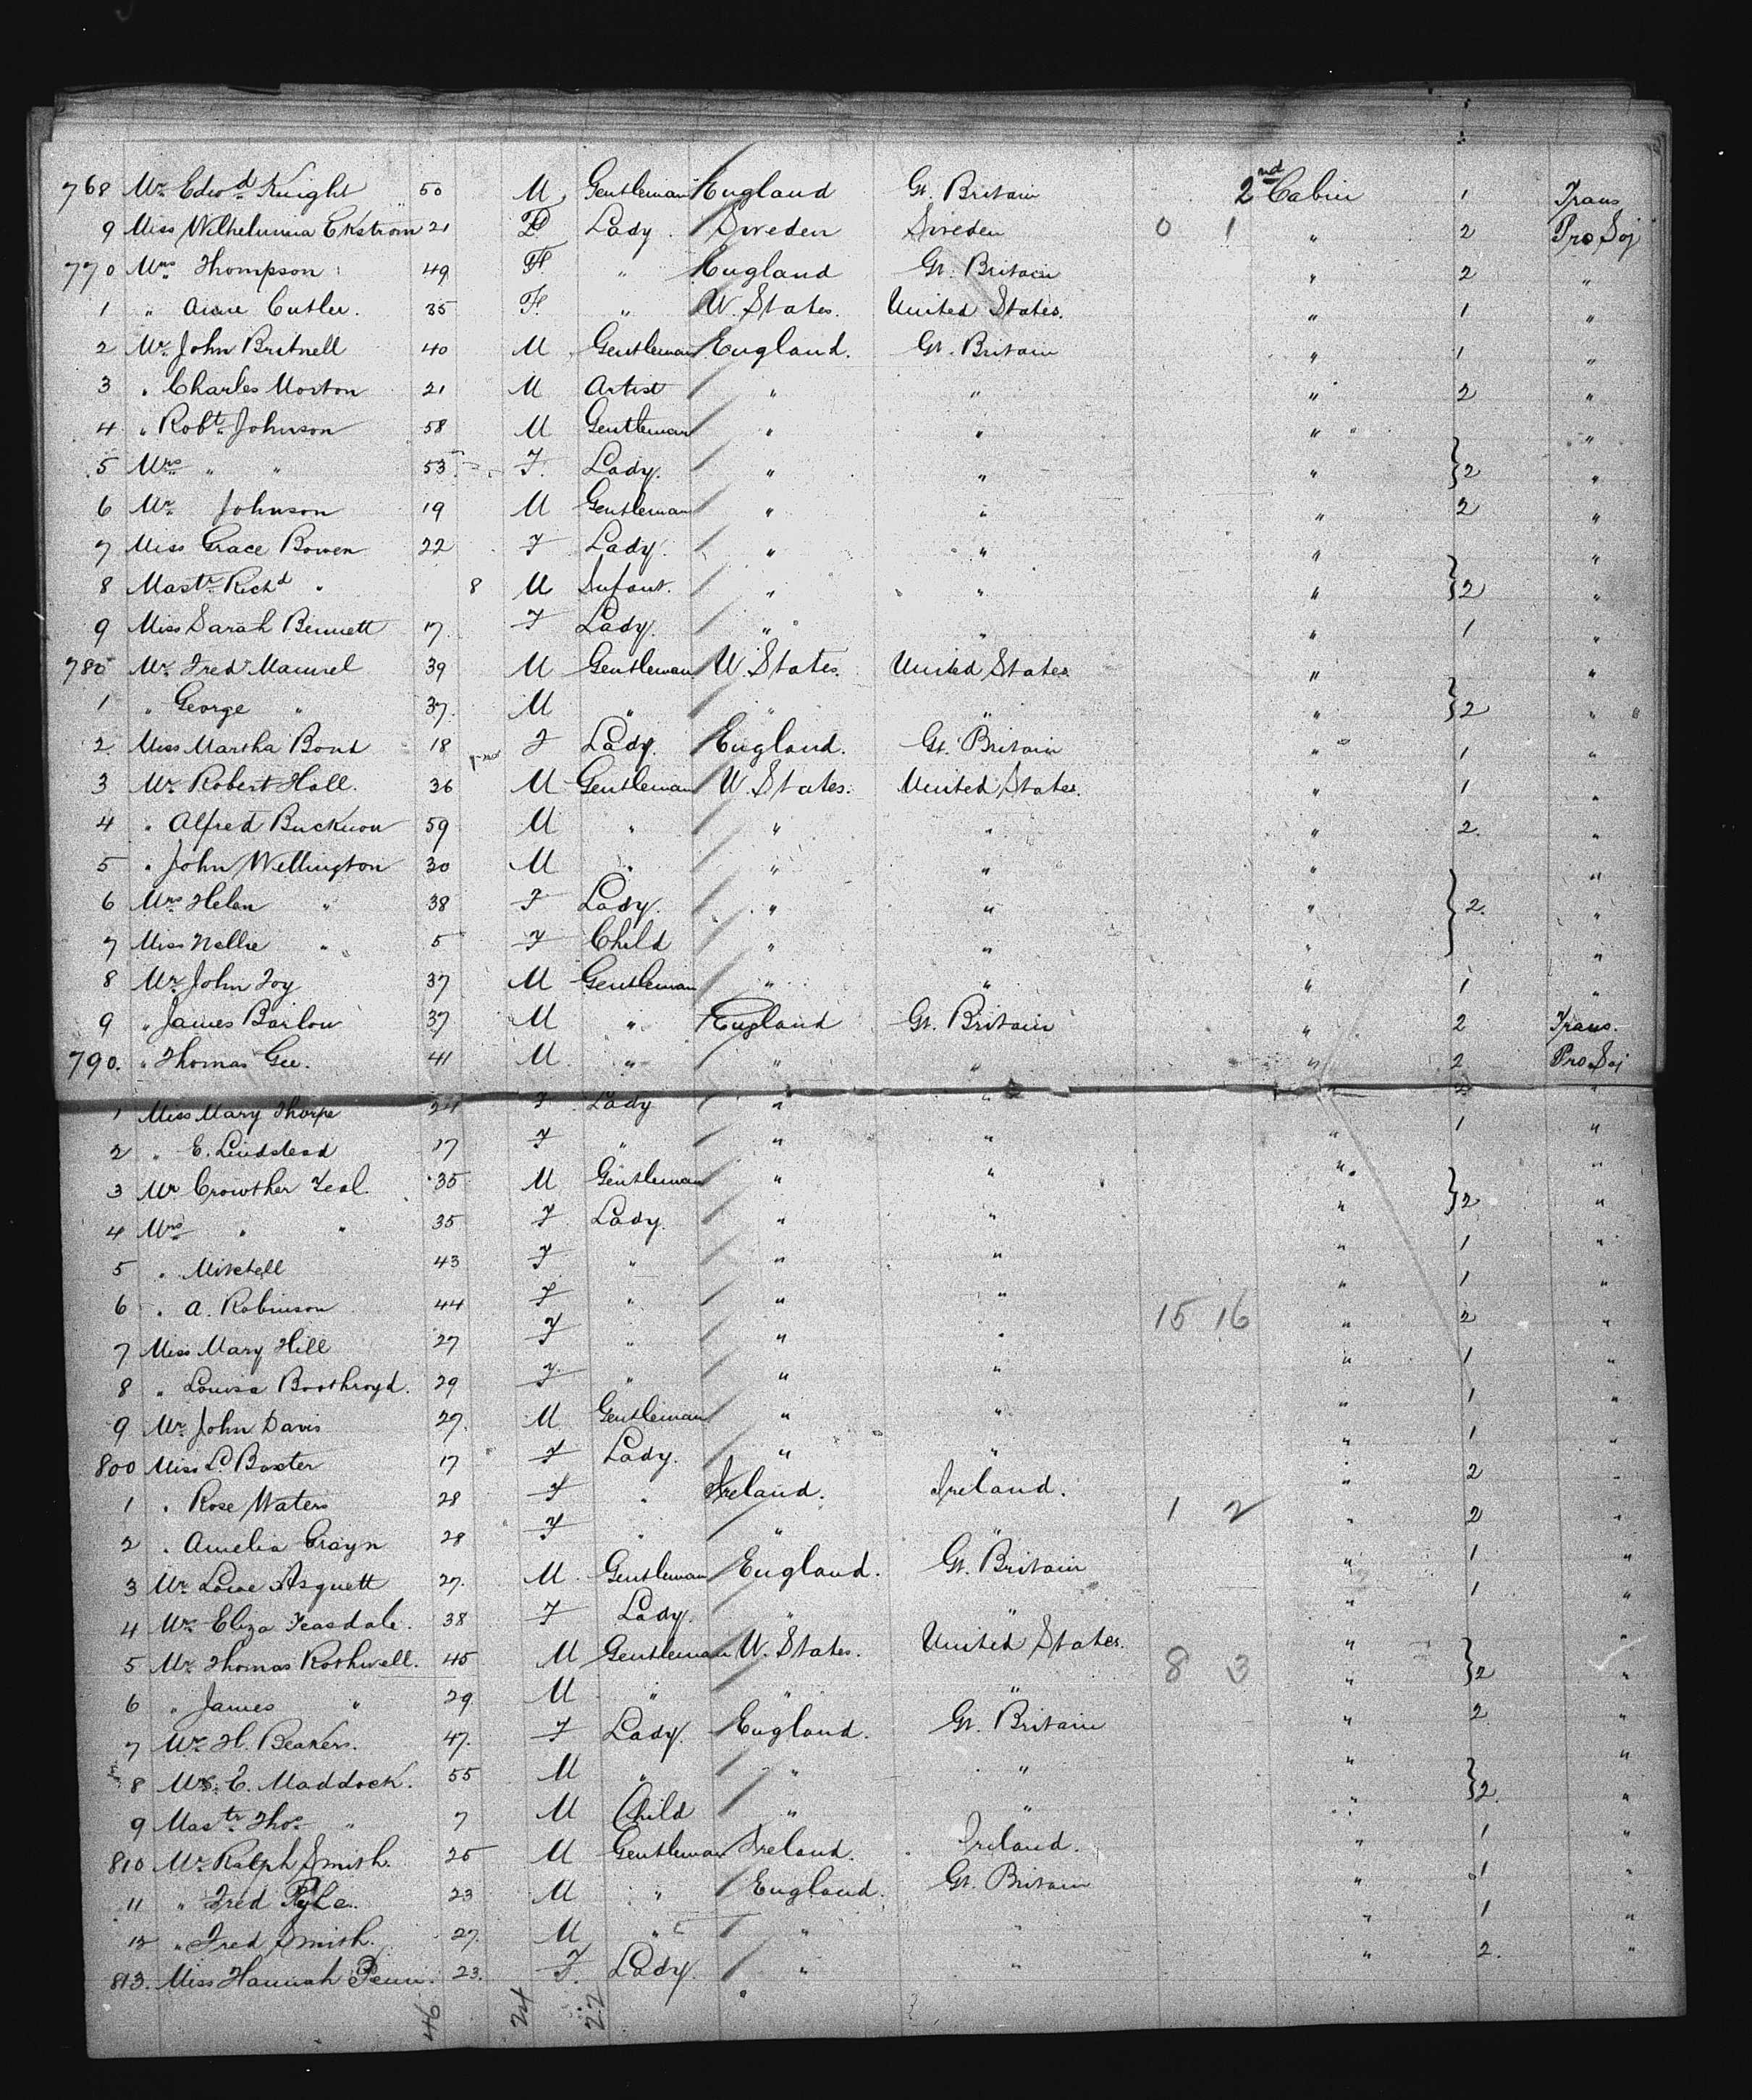 768 Mr. Edwd. Knight 50 M Gentleman England Gt. Britain 2nd Cabin 1 Trans
9 Miss Wilhelmina Ekstrom 21 F Lady Sweden Sweden 0 1 " 2 Pro Soj
770 Mrs Thompson 49 F " England Gt. Britain " 2 "
1 " Anne Cutler. 35 F. " U. States. United States. " 1 "
2 Mr. John Britnell 40 M Gentleman England. Gt. Britain " 1 "
3 " Charles Morton 21 M Artist " " " 2 "
4 " Robt. Johnson 58 M Gentleman " " " "
5 Mrs " " 53 F. Lady. " " " }2 "
6 Mr. Johnson 19 M Gentleman " " " 2 "
7 Miss Grace Bowen 22 F Lady. " " " "
8 Mastr. Richd " 8 M Infant. " " " }2 "
9 Miss Sarah Bennett 17 F Lady. " " " 1 "
780 Mr. Fredr Maurel 39 M Gentleman U. States. United States. " "
1 " George " 37. M " " " " }2 "
2 Miss Martha Bond 18 F Lady. England. Gt. Britain " 1 "
3 Mr. Robert Hall. 36 M Gentleman U. States. United States. " 1 "
4 " Alfred Bucknon 59 M " " " " 2. "
5 " John Wellington 30 M " " " " "
6 Mrs Helen " 38 F Lady. " " " }2. "
7 Miss Nellie " 5 F Child " " " "
8 Mr. John Foy 37 M Gentleman " " " 1 "
9 " James Barlow 37 M " England Gt. Britain " 2 Trans.
790. " Thomas Gee. 41 M " " " " 2 Pro Soj
1 Miss Mary Thorpe 24 F Lady " " " 2 "
2 " E. Lindstead 17 F " " " " 1 "
3 Mr Crowther Teal. 35 M Gentleman " " " "
4 Mrs " " 35 F Lady. " " " }2 "
5 " Mitchell 43 F " " " " 1 "
6 " A. Robinson 44 F " " " " 1 "
7 Miss Mary Hill 27 F " " " 15 16 " 2 "
8 " Louisa Boothroyd. 29 F. " " " " 1 "
9 Mr. John Davis 27. M Gentleman " " " 1 "
800 Miss L. Baxter 17 F Lady. " " " 1 "
1 " Rose Waters 28 F " Ireland. Ireland. 1 2 " 2 "
2 " Amelia Crayn 28 F " " " " 2 "
3 Mr. Lowe Asquett 27. M Gentleman England. Gt. Britain " 1 "
4 Mrs Eliza Teasdale. 38 F Lady. " " " 1 "
5 Mr. Thomas Rothwell. 45 M Gentleman U. States. United States. 8 3 " "
6 " James " 29. M " " " " }2 "
7 Mr. H. Beakers. 47. F Lady. England. Gt. Britain " 2 "
8 Mrs. E. Maddock. 55 M " " " " "
9 Mastr. Thos. " 7 M Child " " " }2. "
810 Mr. Ralph Smith. 25 M Gentleman Ireland. Ireland. " 1 "
11 " Fred Pyle. 23 M " England. Gt. Britain " 1 "
12 " Fred Smith. 27. M " " " " 1 "
813. Miss Hannah Penn. 23. F. Lady. " " " 2. "
46 24 22